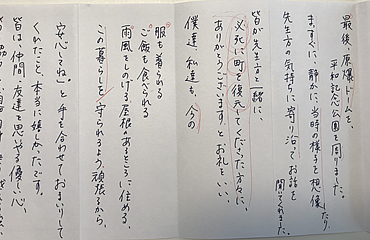 最後、原爆ドームを、
平和記念公園を周りました。
まっすぐに、静かに、当時の様子を想像したり、
先生方の気持ちに寄り沿ってお話を
皆が先生方と一緒に、
必死に町を復元してくださった方々に、
ありがとうございますとお礼をいい、
僕達、私達も、今の
服も着られる
ご飯も食べられる
雨風をしのげる屋根のあるところに住める、
この暮らしを守られるよう頑張るから、
安心してね」と手を合わせておまいりして
くれたこと、本当に嬉しかったです。
皆は、仲間、友達を思いやる優しい心、